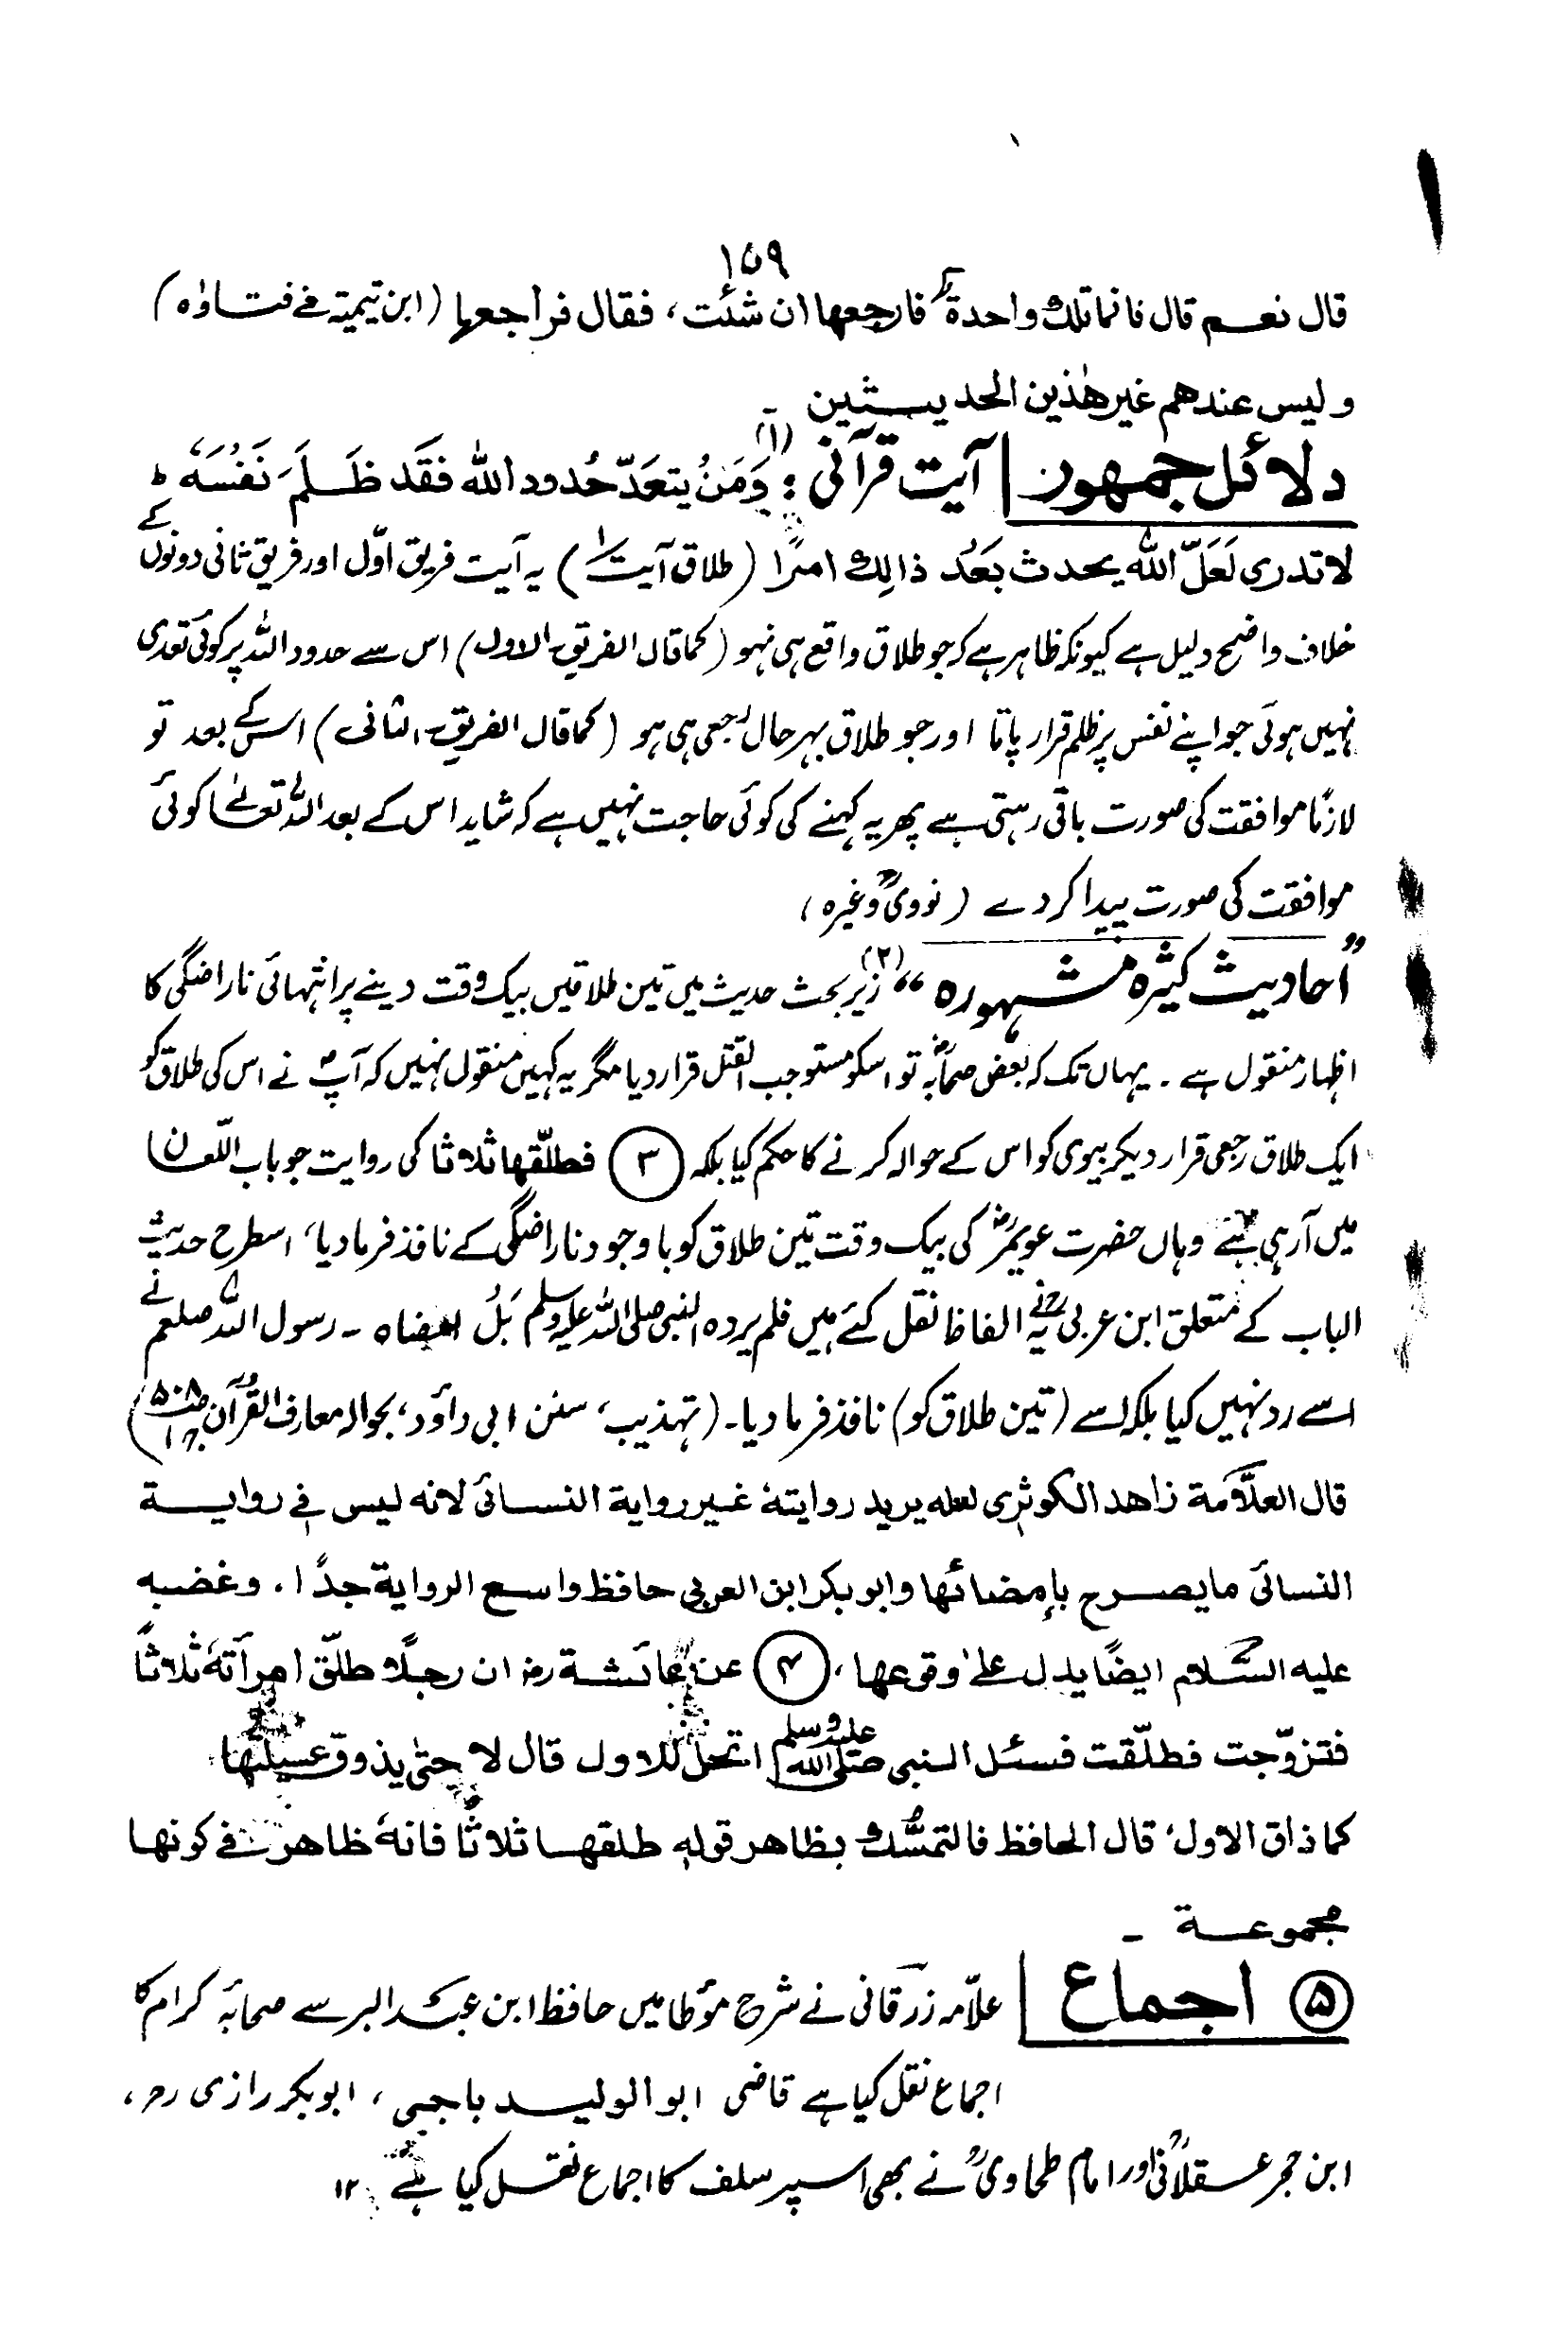 ۱۵۹
قال نعم قال فانما تلك واحدة فارجعها ان شئت، فقال فراجعها (ابن تیمیۃ فی فتاوٰہ)
ولیس عندھم غیر ھٰذین الحدیثین ۔
دلائل جمہور | آیت قرآنی : (۱) وَمَنْ یتعَدّ حُدود اللہ فقَد ظَلَمَ نَفْسَہٗ ط
لا تدری لَعَلّ اللہ یحدث بَعْدَ ذالِك امرًا (طلاق آیت ۱) یہ آیت فریق اوّل اور فریق ثانی دونوں کے
خلاف واضح دلیل ہے کیونکہ ظاہر ہے کہ جو طلاق واقع ہی نہو (کما قال الفریق الاول) اس سے حدود اللہ پر کوئی تعدی
نہیں ہوئی جو اپنے نفس پر ظلم قرار پاتا اور جو طلاق بہر حال رجعی ہی ہو (کما قال الفریق الثانی) اس کے بعد تو
لازمًا موافقت کی صورت باقی رہتی ہے پھر یہ کہنے کی کوئی حاجت نہیں ہے کہ شاید اس کے بعد اللہ تعالےٰ کوئی
موافقت کی صورت پیدا کر دے (نوویؒ وغیرہ)
”احادیث کثیرہ مشہورہ“ (۲) زیر بحث حدیث میں تین طلاقیں بیک وقت دینے پر انتہائی ناراضگی کا
اظہار منقول ہے ۔ یہاں تک کہ بعض صحابہؓ تو اسکو مستوجب القتل قرار دیا مگر یہ کہیں منقول نہیں کہ آپؐ نے اس کی طلاق کو
ایک طلاق رجعی قرار دیکر بیوی کو اس کے حوالہ کرنے کا حکم کیا بلکہ (۳) فطلّقھا ثلاثا کی روایت جو باب اللّعان
میں آرہی ہے وہاں حضرت عویمرؓ کی بیک وقت تین طلاق کو باوجود ناراضگی کے نافذ فرمادیا، اسطرح حدیث
الباب کے متعلق ابن عربیؒ نے یہ الفاظ نقل کئے ہیں فلم یردہ النبی صلی اللہ علیہ وسلم بَلْ امضاہ ۔ رسول اللہ صلعم نے
اسے رد نہیں کیا بلکہ اسے (تین طلاق کو) نافذ فرما دیا۔ (تہذیب، سنن ابی داؤد، بحوالہ معارف القرآن ص۵۰۸ ج۱)
قال العلّامة زاھد الکوثری لعلہ یرید روایتہٗ غیر روایة النسائی لانہ لیس فی روایـة
النسائی ما یصرح بإمضائھا وابو بکر ابن العربی حافظ واسع الروایة جدًا ۔ وغضبہ
علیہ السّلام ایضًا یدل علیٰ وقوعھا، (۴) عن عائشة رض ان رجلًا طلّق امرأتہٗ ثلاثًا
فتزوّجت فطلّقت فسئل النبی صلی اللہ علیہ وسلم اتحل للاول قال لا حتیٰ یذوق عسیلتھا
کما ذاق الاول، قال الحافظ فالتمسُّك بظاھر قولہٖ طلقھا ثلاثًا فانہٗ ظاھر فی کونھا
مجموعـة ۔
(۵) اجماع | علّامہ زرقانی نے شرح مؤطا میں حافظ ابن عبد البر سے صحابۂ کرام کا
اجماع نقل کیا ہے قاضی ابو الولید باجی، ابوبکر رازی رح،
ابن حجر عسقلانیؒ اور امام طحاویؒ نے بھی اسپر سلف کا اجماع نقل کیا ہے ۱۲